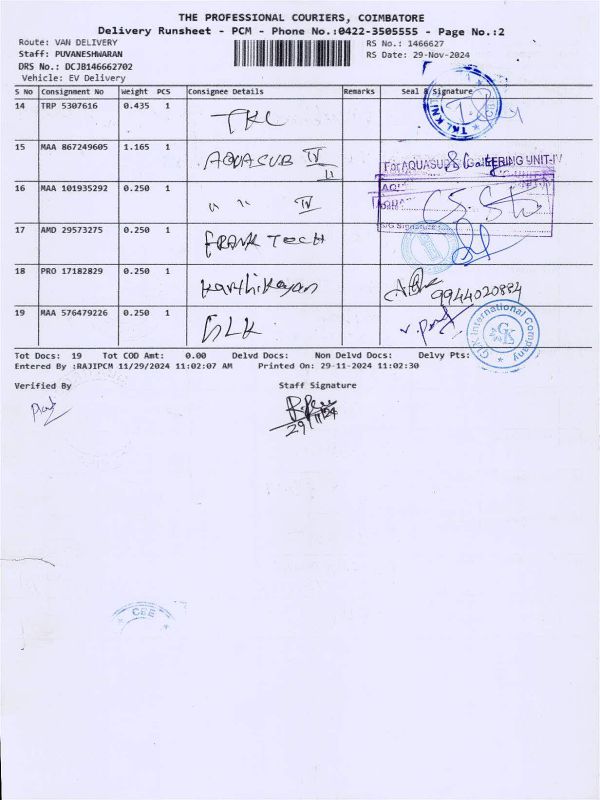 THE PROFESSIONAL COURIERS, COIMBATORE
Delivery Runsheet - PCM - Phone No.:0422-3505555 - Page No.:2
Route: VAN DELIVERY RS No.: 1466627
Staff: PUVANESHWARAN RS Date: 29-Nov-2024
DRS No.: DCJB146662702
Vehicle: EV Delivery
S No Consignment No Weight PCS Consignee Details Remarks Seal & Signature
14 TRP 5307616 0.435 1 TKL
15 MAA 867249605 1.165 1 AQUASUB IV
For AQUASUB ENGINEERING UNIT-IV
16 MAA 101935292 0.250 1 " " IV
17 AMD 29573275 0.250 1 FRANK TECH
18 PRO 17182829 0.250 1 Karthikeyan 9944020884
19 MAA 576479226 0.250 1 GLK
GLK International Company
Tot Docs: 19 Tot COD Amt: 0.00 Delvd Docs: Non Delvd Docs: Delvy Pts:
Entered By :RAJIPCM 11/29/2024 11:02:07 AM Printed On: 29-11-2024 11:02:30
Verified By Staff Signature
29/11/24
CEE